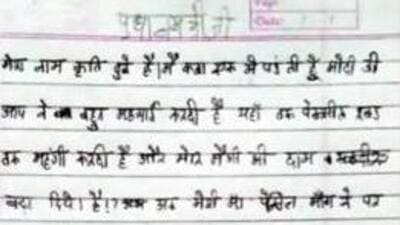 प्रधानमंत्री जी
Page
Date:
मेरा नाम कृति दुबे है। मै कक्षा एक मे पढ़ती हूँ मोदी जी
आप ने बहुत महगाई करदी है यहाँ तक पेन्सील रबड़
तक महंगी करदी है और मेरे मैगी की दाम
बढ़ा दिये। है!? अब मेरी मा पेंसिल माँगने पर